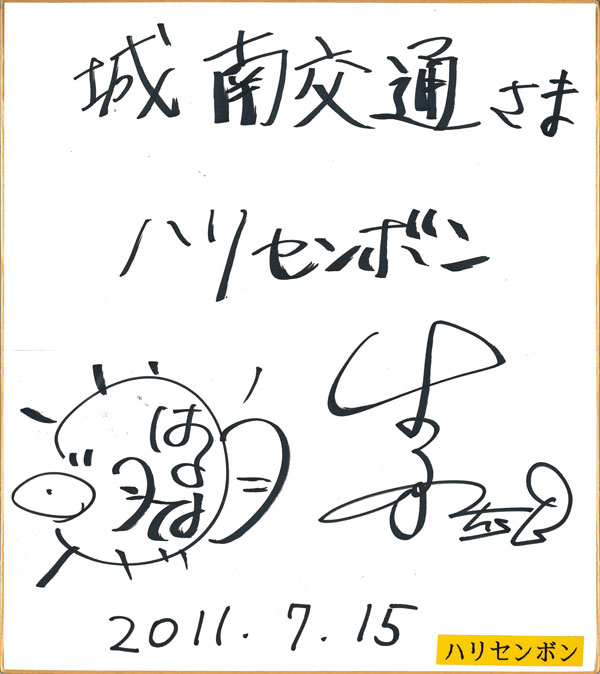 城南交通さま
ハリセンボン
2011. 7. 15
ハリセンボン